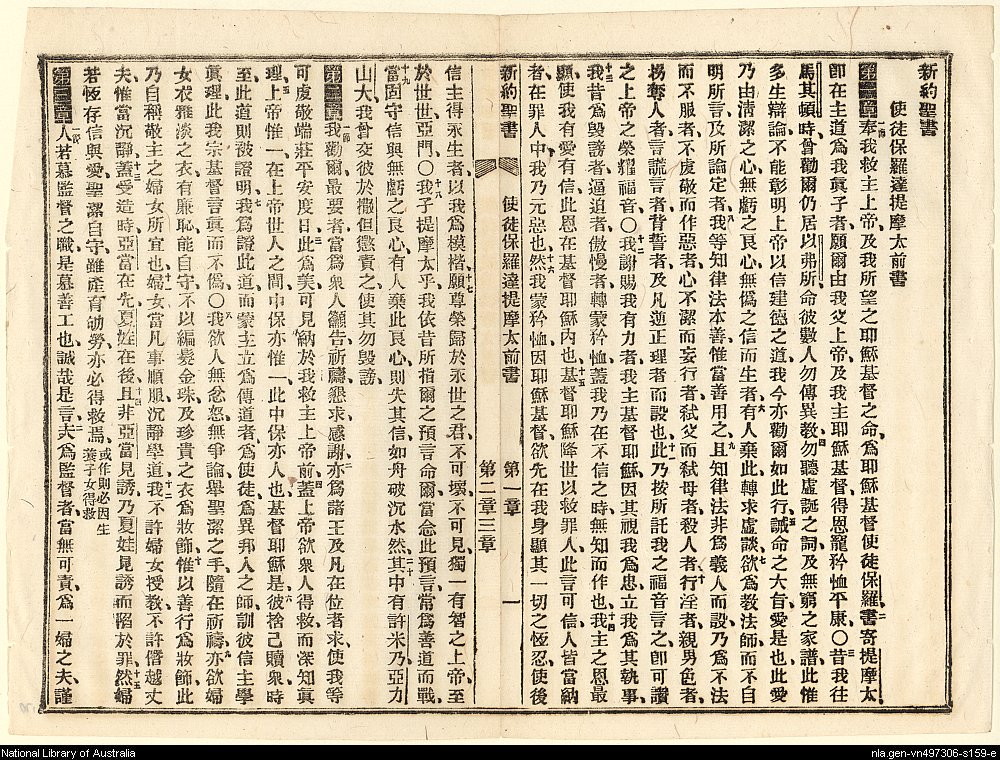 新約聖書
使徒保羅達提摩太前書
第一章奉我救主上帝及我所望之耶穌基督之命爲耶穌基督使徒保羅書寄提摩太
卽在主道爲我眞子者願爾由我父上帝及我主耶穌基督得恩寵矜恤平康〇昔我往
馬其頓時曾勸爾仍居以弗所命彼數人勿傳異教勿聽虛誕之詞及無窮之家譜此惟
多生辯論不能彰明上帝以信建德之道我今亦勸爾如此行誡命之大旨愛是也此愛
乃由清潔之心無虧之良心無僞之信而生者有人棄此轉求虛談欲爲教法師而不自
明所言及所論定者我等知律法本善惟當善用之且知律法非爲義人而設乃爲不法
而不服者不虔敬而作惡者心不潔而妄行者弒父而弒母者殺人者行淫者親男色者
拐奪人者言謊言者背誓者及凡逆正理者而設也此乃按所託我之福音言之卽可讚
之上帝之榮耀福音〇我謝賜我有力者我主基督耶穌因其視我爲忠立我爲其執事
我昔爲毀謗者逼迫者傲慢者轉蒙矜恤蓋我乃在不信之時無知而作也我主之恩最
顯使我有愛有信此恩在基督耶穌內也基督耶穌降世以救罪人此言可信人皆當納
者在罪人中我乃元惡也然我蒙矜恤因耶穌基督欲先在我身顯其一切之恆忍使後
新約聖書 使徒保羅達提摩太前書 第一章 第二章三章 一
信主得永生者以我爲模楷願尊榮歸於永世之君不可壞不可見獨一有智之上帝至
於世世亞門〇我子提摩太乎我依昔所指爾之預言命爾當念此預言當爲善道而戰
當固守信與無虧之良心有人棄此良心則失其信如舟破沉水然其中有許米乃亞力
山大我曾交彼於撒但懲責之使其勿毀謗
第二章我勸爾最要者當爲衆人籲告祈禱懇求感謝亦爲諸王及凡在位者求使我等
可虔敬端莊平安度日此爲美可見納於我救主上帝前蓋上帝欲衆人得救而深知眞
理上帝惟一在上帝世人之間中保亦惟一此中保亦人也基督耶穌是彼捨己贖衆時
至此道則被證明我爲證此道而蒙主立爲傳道者爲使徒爲異邦人之師訓彼信主學
眞理此我宗基督言眞而不僞〇我欲人無忿怒無爭論舉聖潔之手隨在祈禱亦欲婦
女衣雅淡之衣有廉恥能自守不以編髮金珠及珍貴之衣爲妝飾惟以善行爲妝飾此
乃自稱敬主之婦女所宜也婦女當凡事順服沉靜學道我不許婦女授教不許僭越丈
夫惟當沉靜蓋受造時亞當在先夏娃在後且非亞當見誘乃夏娃見誘而陷於罪然婦
若恆存信與愛聖潔自守雖產育劬勞亦必得救焉或作則必因生養子女得救
第三章人若慕監督之職是慕善工也誠哉是言夫爲監督者當無可責爲一婦之夫謹
National Library of Australia
nla.gen-vn497306-s159-e